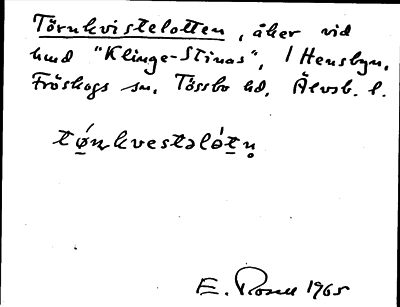 Törnkvistelotten, åker vid
hmd "Klinge-Stinas", 1 Hensbyn,
Fröskogs sn, Tössbo hd, Älvsb. l.
tǿṇkvestəlót̠n̥
E. Rosell 1965